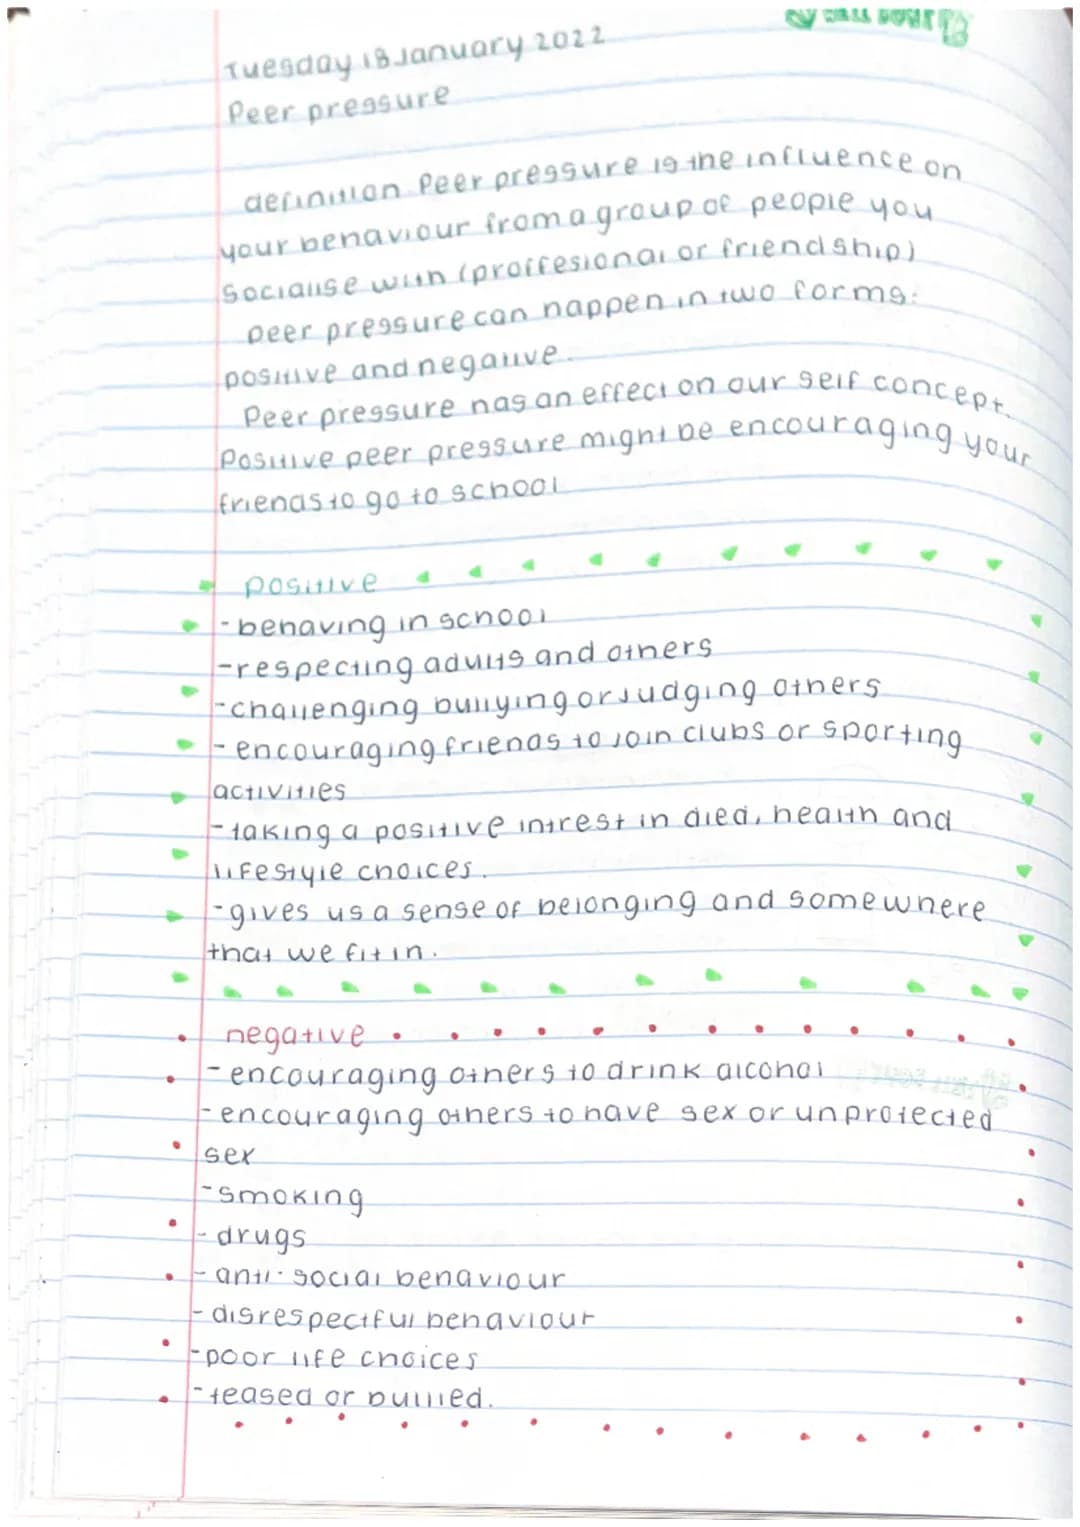 Tuesday 18 January 2022
Peer pressure
definition Peer pressure is the influence on
your behaviour from a group of people you
socialise with (proffesional or friendship)
peer pressure can happen in two forms:
positive and negative.
Peer pressure has an effect on our self concept.
Positive peer pressure might be encouraging your
friends to go to school
positive
- behaving in school
- respecting adults and others
- challenging bullying or judging others
- encouraging friends to join clubs or sporting
activities
- taking a positive intrest in died, health and
lifestyle choices.
- gives us a sense of belonging and somewhere
that we fit in.
negative
- encouraging others to drink alcohol
- encouraging others to have sex or unprotected
sex
- smoking
- drugs
- anti-social behaviour
- disrespectful behaviour
- poor life choices
- teased or bullied.